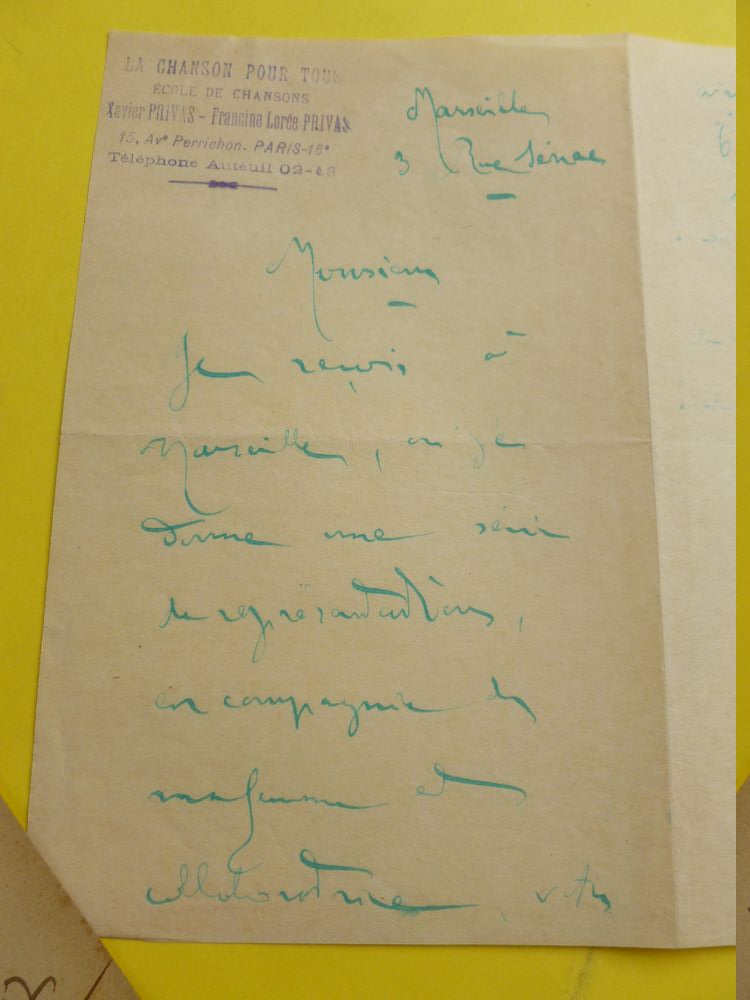 LA CHANSON POUR TOUS
ÉCOLE DE CHANSONS
Xavier PRIVAS - Francine Lorée PRIVAS
15, Avᵉ Perrichon. PARIS-16ᵉ
Téléphone Auteuil 02-43
Marseille
3 Rue Sénac
Monsieur
Je reçois à
Marseille, où je
donne une série
de représentations,
en compagnie de
ma femme et
collaboratrice, votre